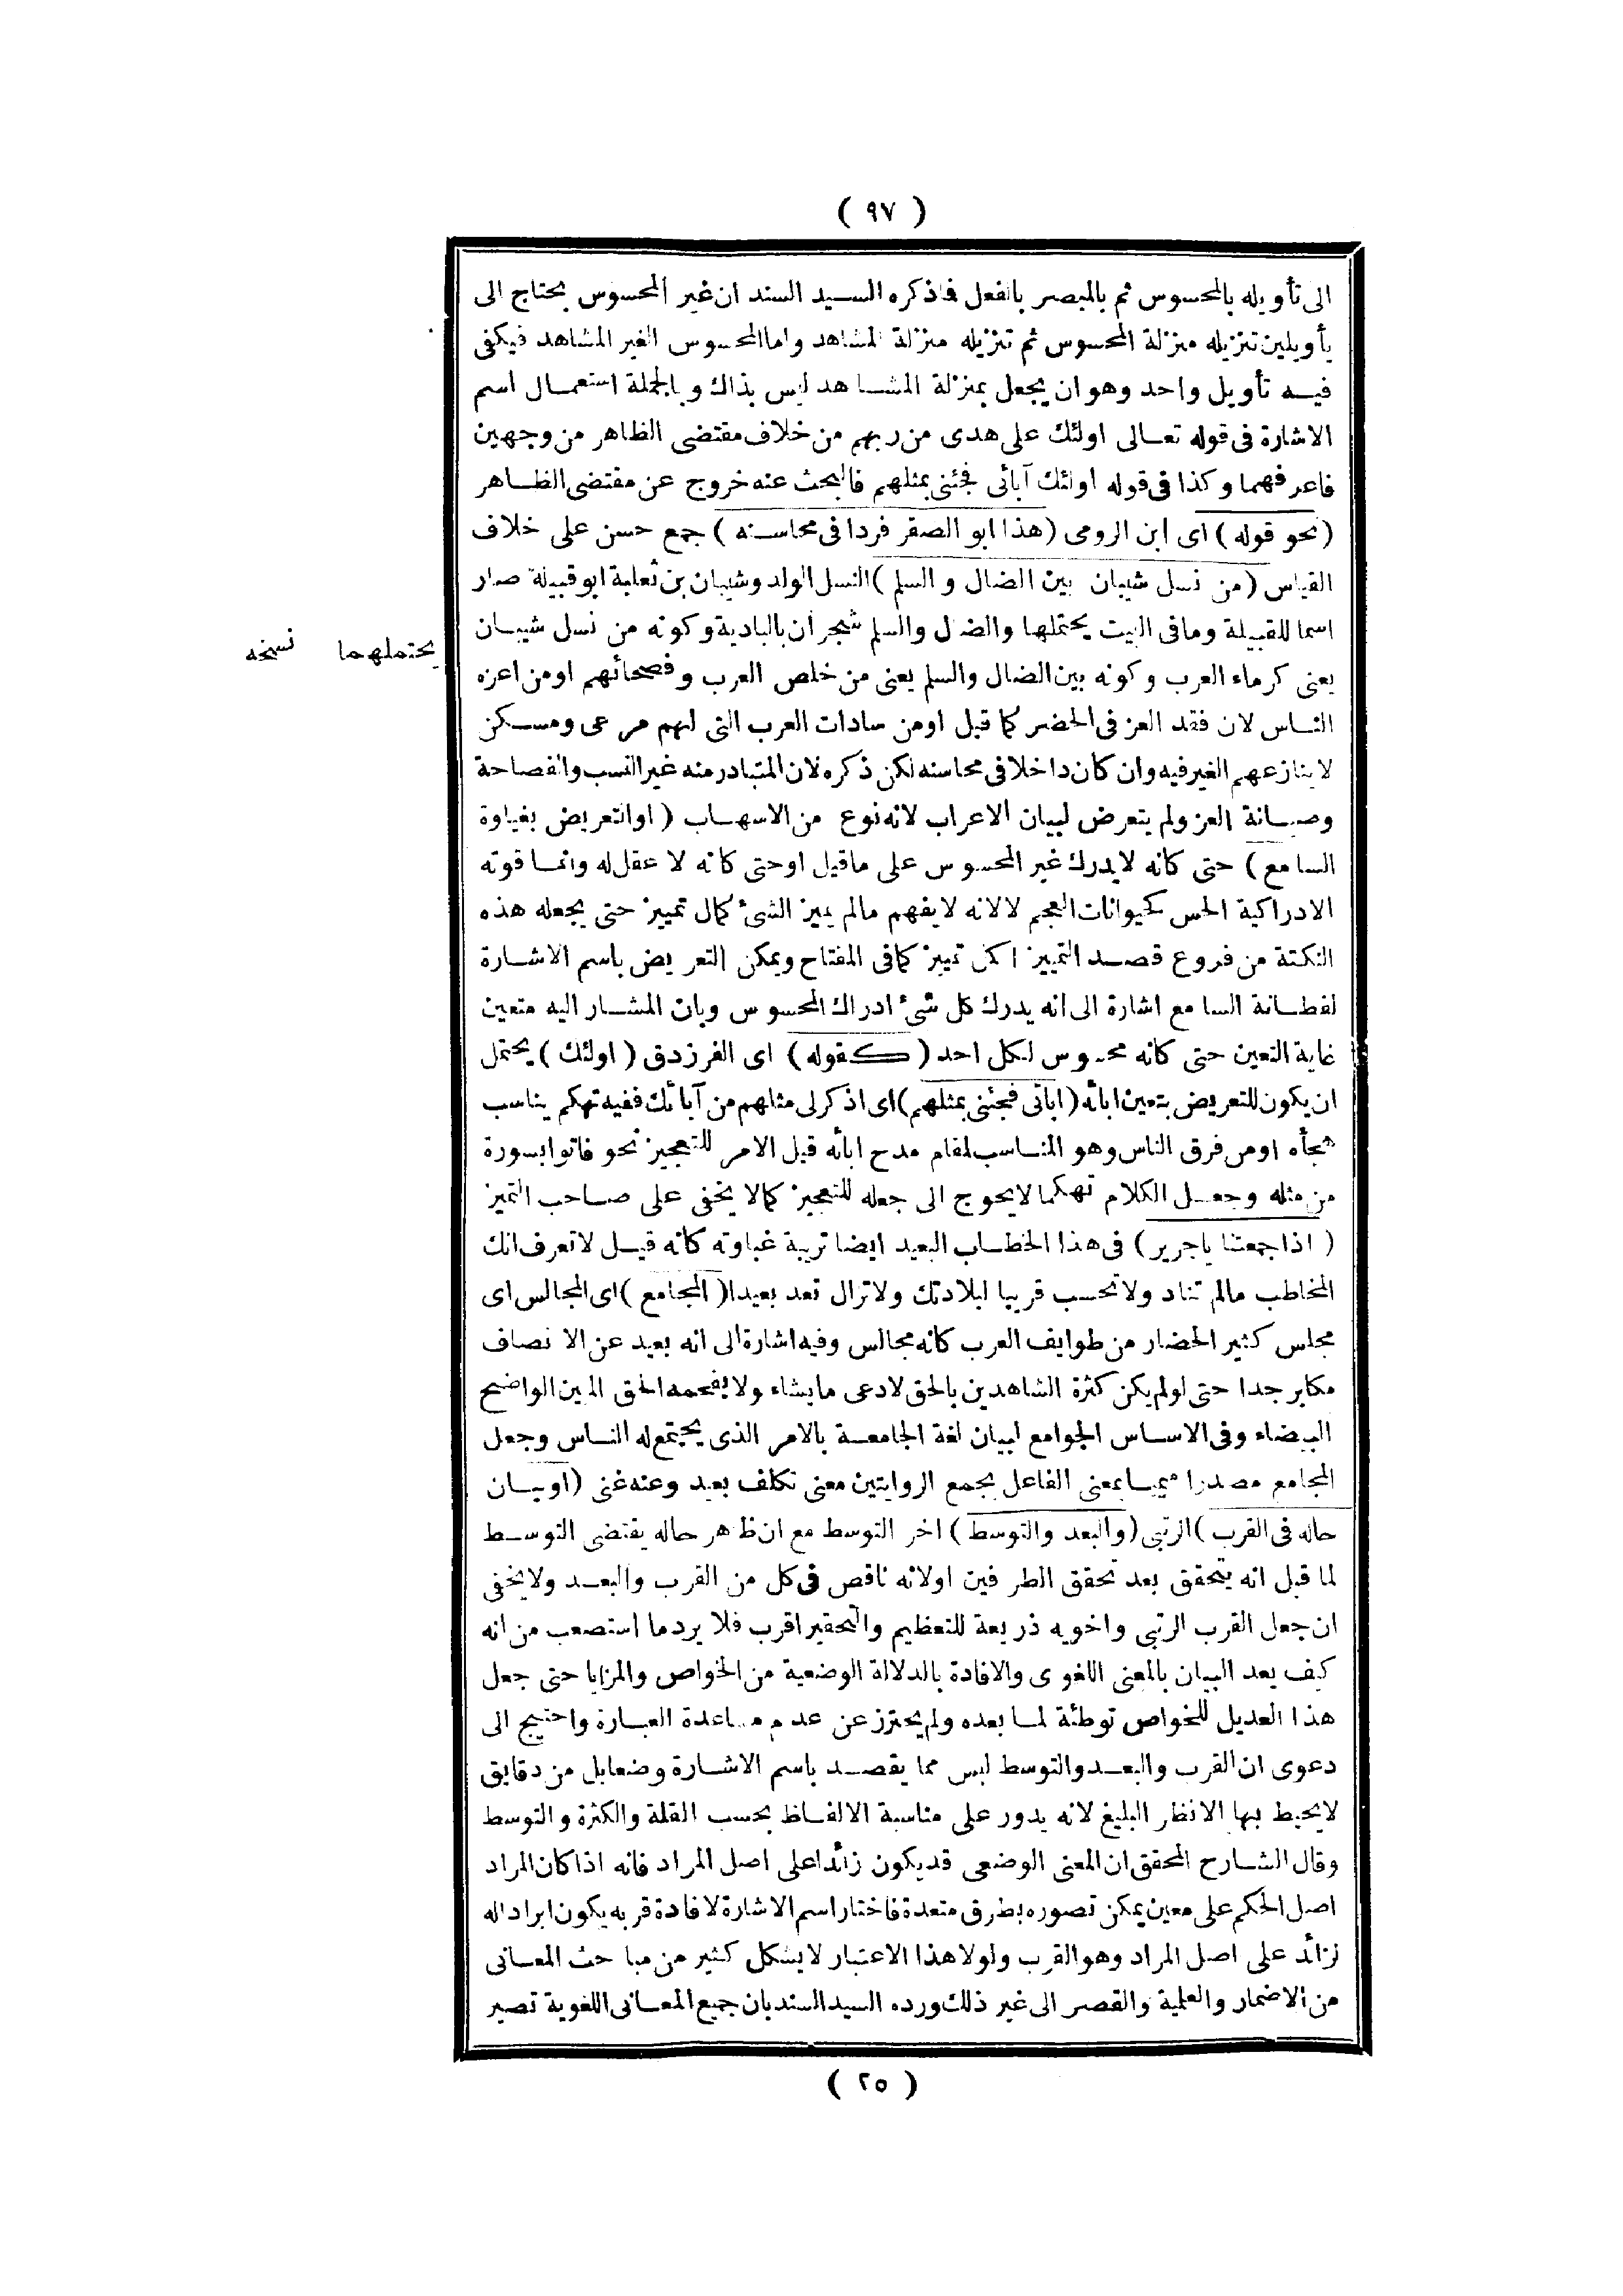 ( ٩٧ )
الى تأويله بالمحسوس ثم بالمبصر بالفعل فما ذكره السيد السند ان غير المحسوس يحتاج الى
تأويلين تنزيله منزلة المحسوس ثم تنزيله منزلة المشاهد واما المحسوس الغير المشاهد فيكفى
فيه تأويل واحد وهو ان يجعل بمنزلة المشاهد ليس بذاك وبالجملة استعمال اسم
الاشارة فى قوله تعالى اولئك على هدى من ربهم من خلاف مقتضى الظاهر من وجهين
فاعرفهما وكذا فى قوله اولئك آبائى فجئنى بمثلهم فالبحث عنه خروج عن مقتضى الظاهر
( نحو قوله ) اى ابن الرومى ( هذا ابو الصقر فردا فى محاسنه ) جمع حسن على خلاف
القياس ( من نسل شيبان بين الضال والسلم ) النسل الولد وشيبان بن ثعلبة ابو قبيلة صار
اسما للقبيلة وما فى البيت يحتملها والضال والسلم شجران بالبادية وكونه من نسل شيبان
يحتملهما نسخه
يعنى كرماء العرب وكونه بين الضال والسلم يعنى من خلص العرب وفصحائهم او من اعزه
الناس لان فقد العز فى الحضر كما قيل او من سادات العرب التى لهم مرعى ومسكن
لا ينازعهم الغير فيه وان كان داخلا فى محاسنه لكن ذكره لان المتبادر منه غير النسب والفصاحة
وصيانة العز ولم يتعرض لبيان الاعراب لانه نوع من الاسهاب ( او التعريض بغباوة
السامع ) حتى كانه لا يدرك غير المحسوس على ما قيل او حتى كانه لا عقل له وانما قوته
الادراكية الحس كحيوانات العجم لا لانه لا يفهم مالم يميز الشئ كمال تمييز حتى يجعله هذه
النكتة من فروع قصد التمييز اكمل تمييز كما فى المفتاح ويمكن التعريض باسم الاشارة
لفطانة السامع اشارة الى انه يدرك كل شئ ادراك المحسوس وبان المشار اليه متعين
غاية التعين حتى كانه محسوس لكل احد ( كقوله ) اى الفرزدق ( اولئك ) يحتمل
ان يكون للتعريض بتعين ابائه ( ابائى فجئنى بمثلهم ) اى اذكر لى مثلهم من آبائك ففيه تهكم يناسب
هجأه او من فرق الناس وهو المناسب لمقام مدح ابائه قيل الامر للتعجيز نحو فاتوا بسورة
من مثله وجعل الكلام تهكما لا يحوج الى جعله للتعجيز كما لا يخفى على صاحب التميز
( اذا جمعتنا ياجرير ) فى هذا الخطاب البعيد ايضا تربية غباوته كانه قيل لا تعرف انك
المخاطب مالم تناد ولا تحسب قريبا لبلادتك ولا تزال تعد بعيدا ( المجامع ) اى المجالس اى
مجلس كثير الحضار من طوايف العرب كانه مجالس وفيه اشارة الى انه بعيد عن الانصاف
مكابر جدا حتى لو لم يكن كثرة الشاهدين بالحق لادعى ما يشاء ولا يفحمه الحق المبين الواضح
البيضاء وفى الاساس الجوامع لبيان لغة الجامعة بالامر الذى يجتمع له الناس وجعل
المجامع مصدرا ميميا بمعنى الفاعل بجمع الروايتين معنى تكلف بعيد وعنه غنى ( او بيان
حاله فى القرب ) الرتبى ( والبعد والتوسط ) اخر التوسط مع ان ظاهر حاله يقتضى التوسط
لما قيل انه يتحقق بعد تحقق الطرفين او لانه ناقص فى كل من القرب والبعد ولا يخفى
ان جعل القرب الرتبى واخويه ذريعة للتعظيم والتحقير اقرب فلا يرد ما استصعب من انه
كيف يعد البيان بالمعنى اللغوى والافادة بالدلالة الوضعية من الخواص والمزايا حتى جعل
هذا العديل للخواص توطئة لما بعده ولم يحترز عن عدم مساعدة العبارة واحتيج الى
دعوى ان القرب والبعد والتوسط ليس مما يقصد باسم الاشارة وضعا بل من دقايق
لا يحيط بها الا نظر البليغ لانه يدور على مناسبة الالفاظ بحسب القلة والكثرة والتوسط
وقال الشارح المحقق ان المعنى الوضعى قد يكون زائدا على اصل المراد فانه اذا كان المراد
اصل الحكم على معين يمكن تصوره بطرق متعدة فاختار اسم الاشارة لافادة قربه يكون ايراد اله
لزائد على اصل المراد وهو القرب ولولا هذا الاعتبار لا يشكل كثير من مباحث المعانى
من الاضمار والعلمية والقصر الى غير ذلك ورده السيد السند بان جميع المعانى اللغوية تصير
( ٢٥ )